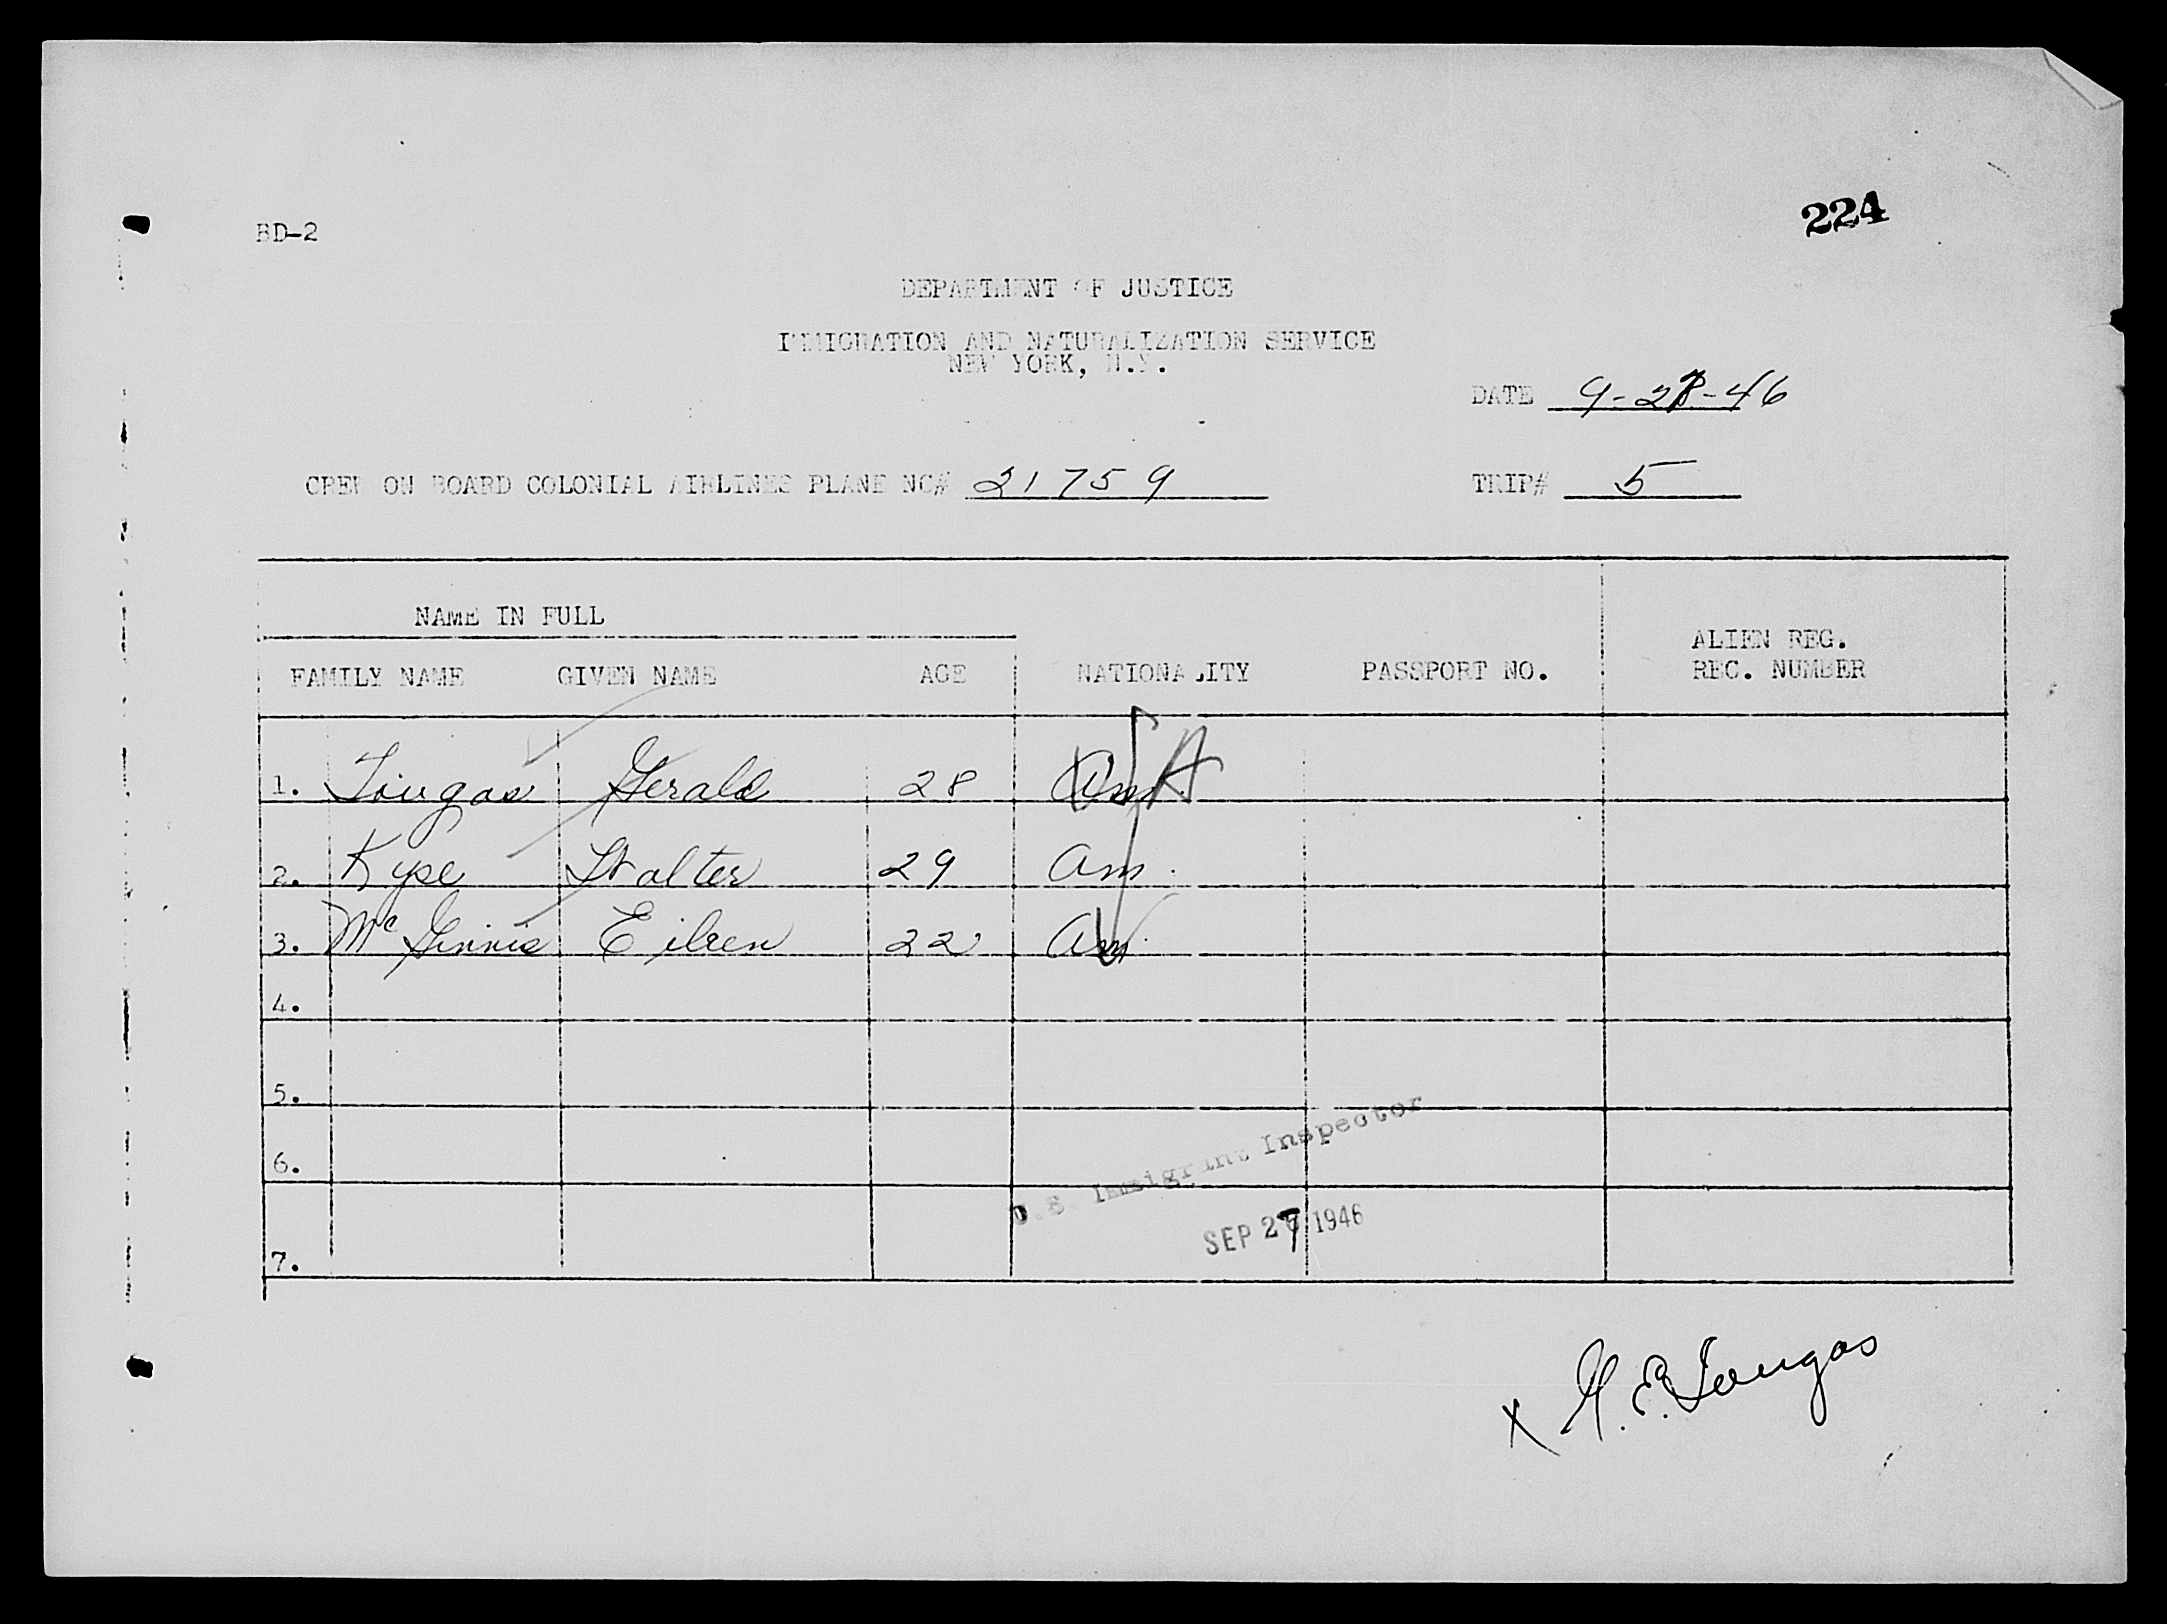 BD-2
224
DEPARTMENT OF JUSTICE
IMMIGRATION AND NATURALIZATION SERVICE
NEW YORK, N.Y.
DATE 9-27-46
CREW ON BOARD COLONIAL AIRLINES PLANE NC# 21759 TRIP# 5
NAME IN FULL
ALIEN REG.
FAMILY NAME GIVEN NAME AGE NATIONALITY PASSPORT NO. REC. NUMBER
USA
1. Tougas Gerald 28 Am.
2. Kype Walter 29 Am.
3. McGinnis Eileen 22 Am.
4.
5.
6.
7.
U.S. Immigrant Inspector
SEP 27 1946
X G.E. Tougas